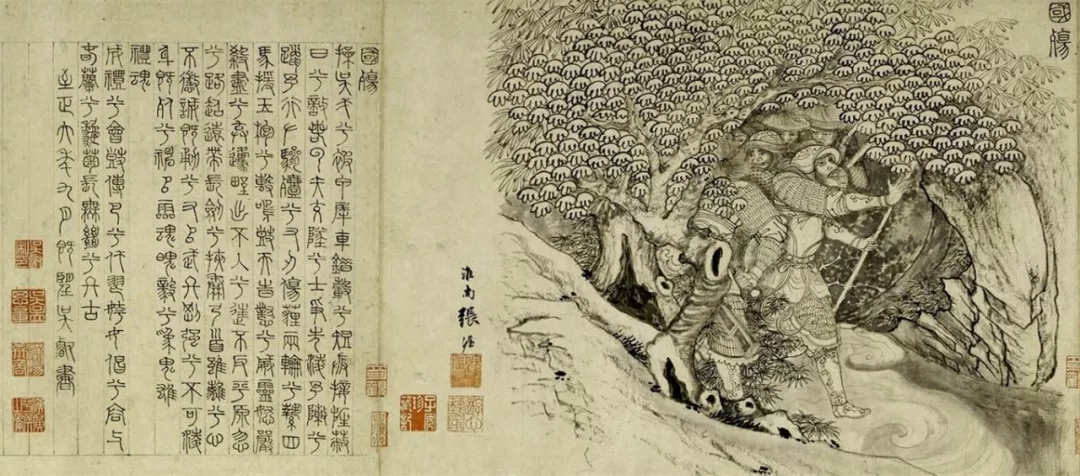 國殤
淮南張渥
國殤
操吳戈兮被甲犀車錯轂兮短兵接旌蔽
日兮敵若雲矢交墜兮士爭先淩予陳兮
躐予行左驂殪兮右刃傷霾兩輪兮縶四
馬援玉枹兮擊鳴鼓天時懟兮威靈怒嚴
殺盡兮棄邍野出不入兮往不反平原忽
兮路超遠帶長劍兮挾秦弓首雖離兮心
不懲誠既勇兮又以武終剛強兮不可淩
身既死兮神以靈魂魄毅兮為鬼雄
禮魂
成禮兮會鼓傳芭兮代舞姱女倡兮容與
春蘭兮秋菊長無絕兮終古
至正六年九月既望吳叡書